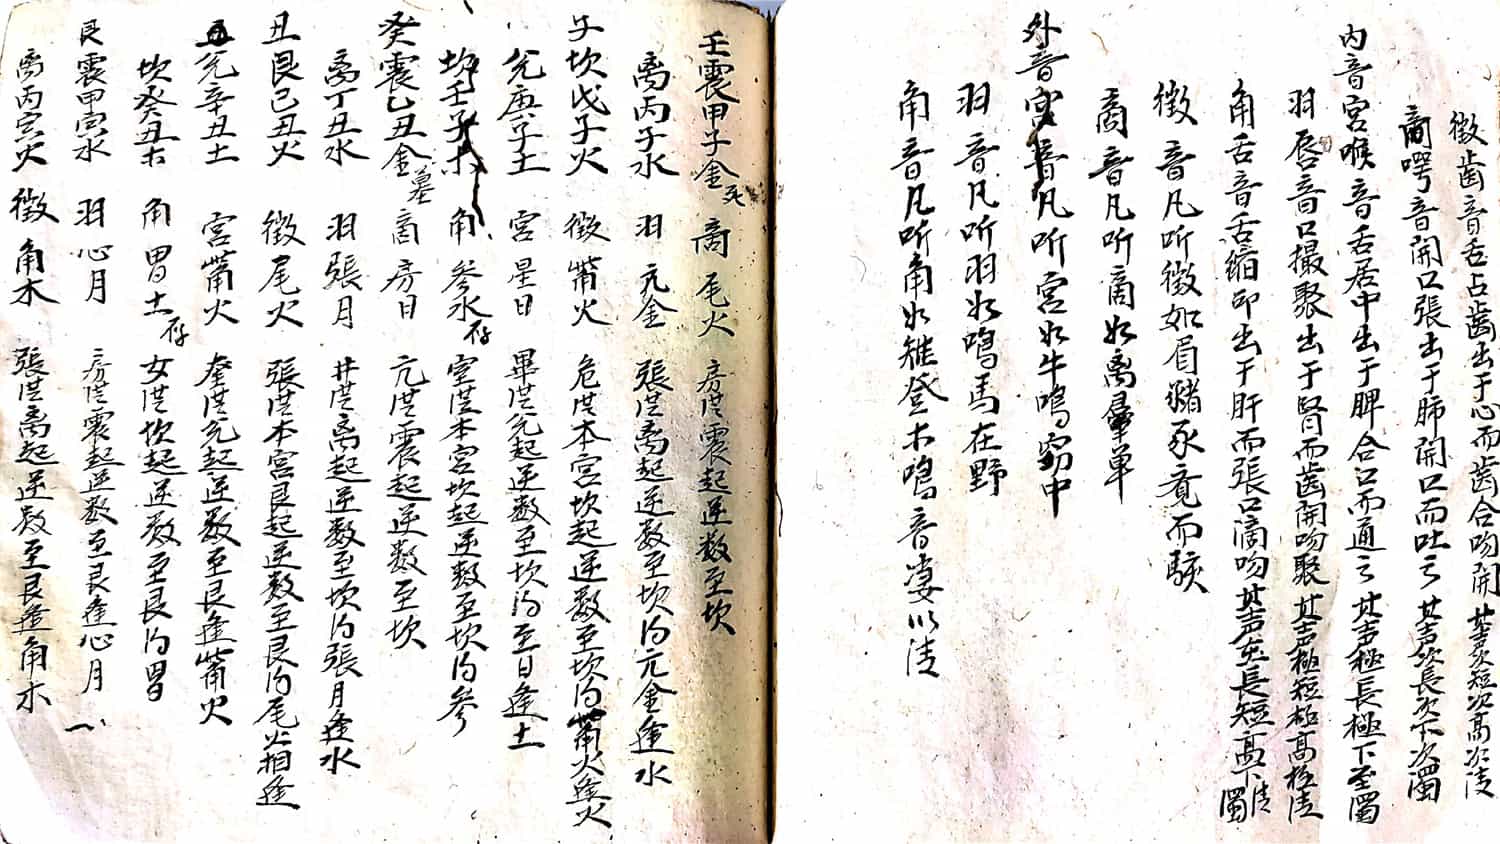 徵齒音舌占齒出于心而齒合吻開其声次短次高次清
商腭音開口張出于肺開口而吐之其声次長次下次濁
內音宮喉音舌居中出于脾合口而通之其声極長極下至濁
羽唇音口撮聚出于腎而齒開吻聚其声極短極高極清
角舌音舌縮卻出于肝而張口滴吻其声在長短高下清濁
徵音凡听徵如眉豬豕竟而駭
商音凡听商如离羣单
外音宮音凡听宮如牛鳴窌中
羽音凡听羽如鳴馬在野
角音凡听角如雉登木鳴音妻以清
壬震甲子金死 商 尾火 房氐震起逆数至坎
离丙子水 羽 亢金 張氐离起逆数至坎泊亢金逢水
子坎戊子火 徵 觜火 危氐本宮坎起逆数至坎泊觜火逢火
兌庚子土 宮 星日 畢氐兌起逆数至坎泊至日逢土
坎壬子木 角 參水存 室氐本宮坎起逆数至坎泊參
癸震乙丑金墓 商 房日 亢氐震起逆数至坎
离丁丑水 羽 張月 井氐离起逆数至坎泊張月逢水
丑艮己丑火 徵 尾火 張氐本宮艮起逆数至艮泊尾火相逢
兌辛丑土 宮 觜火 奎氐兌起逆数至艮逢觜火
坎癸丑木 角 胃土存 女氐坎起逆数至艮泊胃
艮震甲寅水 羽 心月 房氐震起逆数至艮逢心月
离丙寅火 徵 角木 張氐离起逆数至艮逢角木